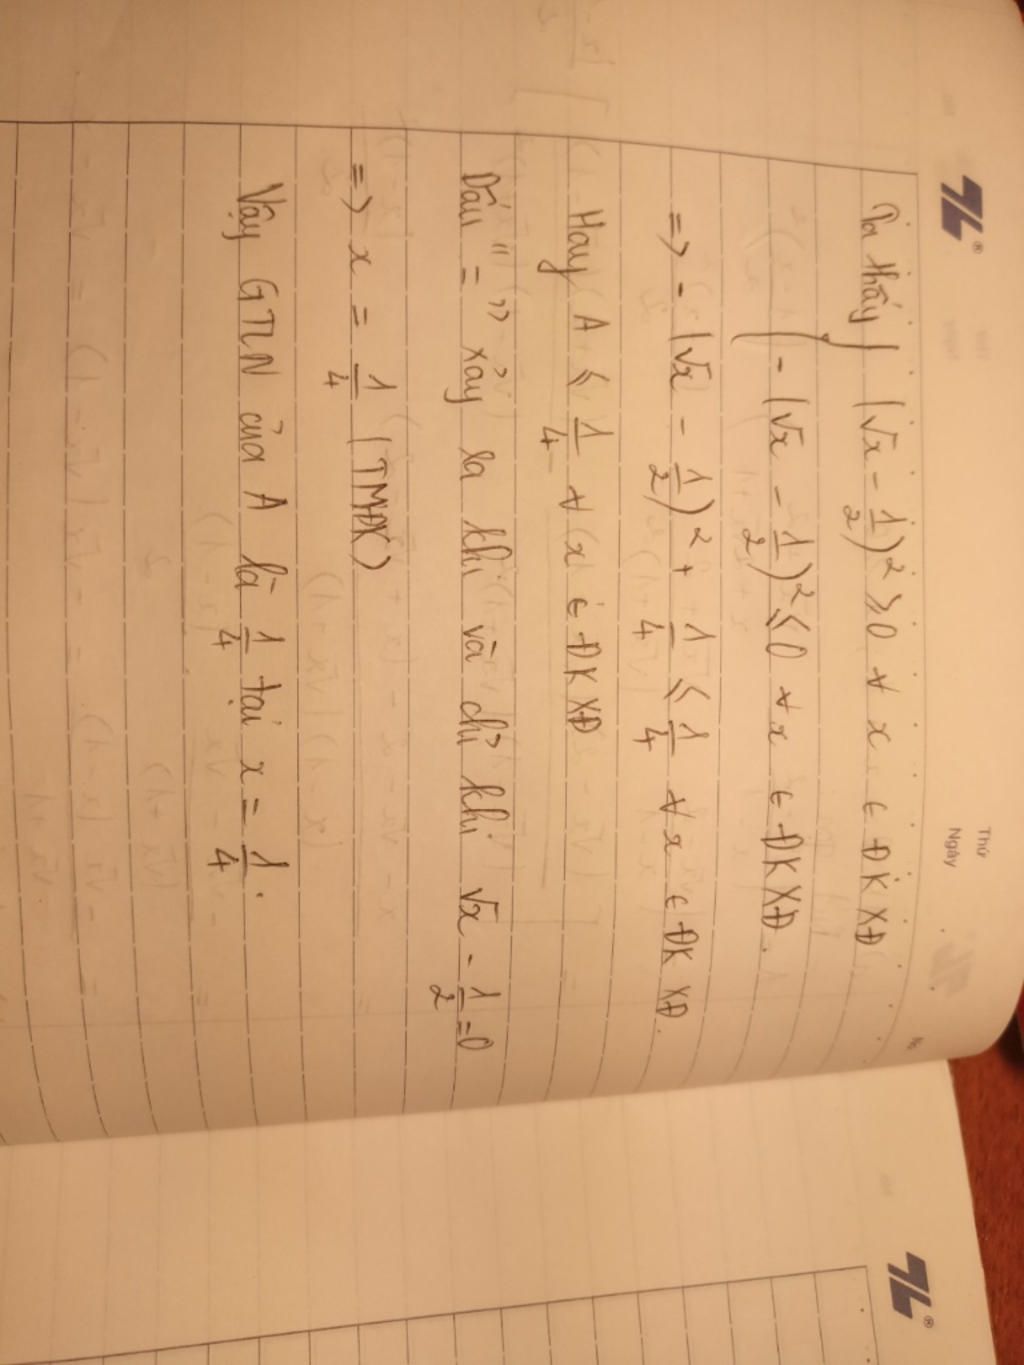 Thứ
Ngày
No
Ta thấy (√x - 1/2)² ≥ 0 ∀ x ∈ ĐKXĐ
- (√x - 1/2)² ≤ 0 ∀ x ∈ ĐKXĐ.
=> - (√x - 1/2)² + 1/4 ≤ 1/4 ∀ x ∈ ĐKXĐ.
Hay A ≤ 1/4 ∀ x ∈ ĐKXĐ
Dấu "=" xảy ra khi và chỉ khi √x - 1/2 = 0
=> x = 1/4 (TMĐK)
Vậy GTLN của A là 1/4 tại x = 1/4.